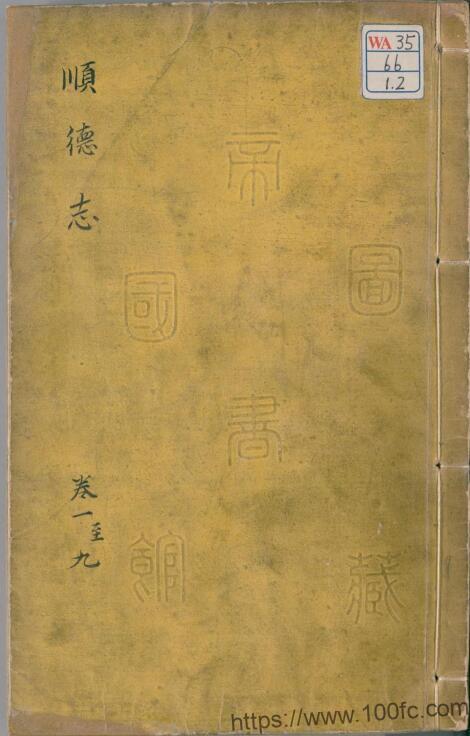 順德志
卷一至九
WA 35
66
1.2
帝
國
圖
書
館
藏
https://www.100fc.com